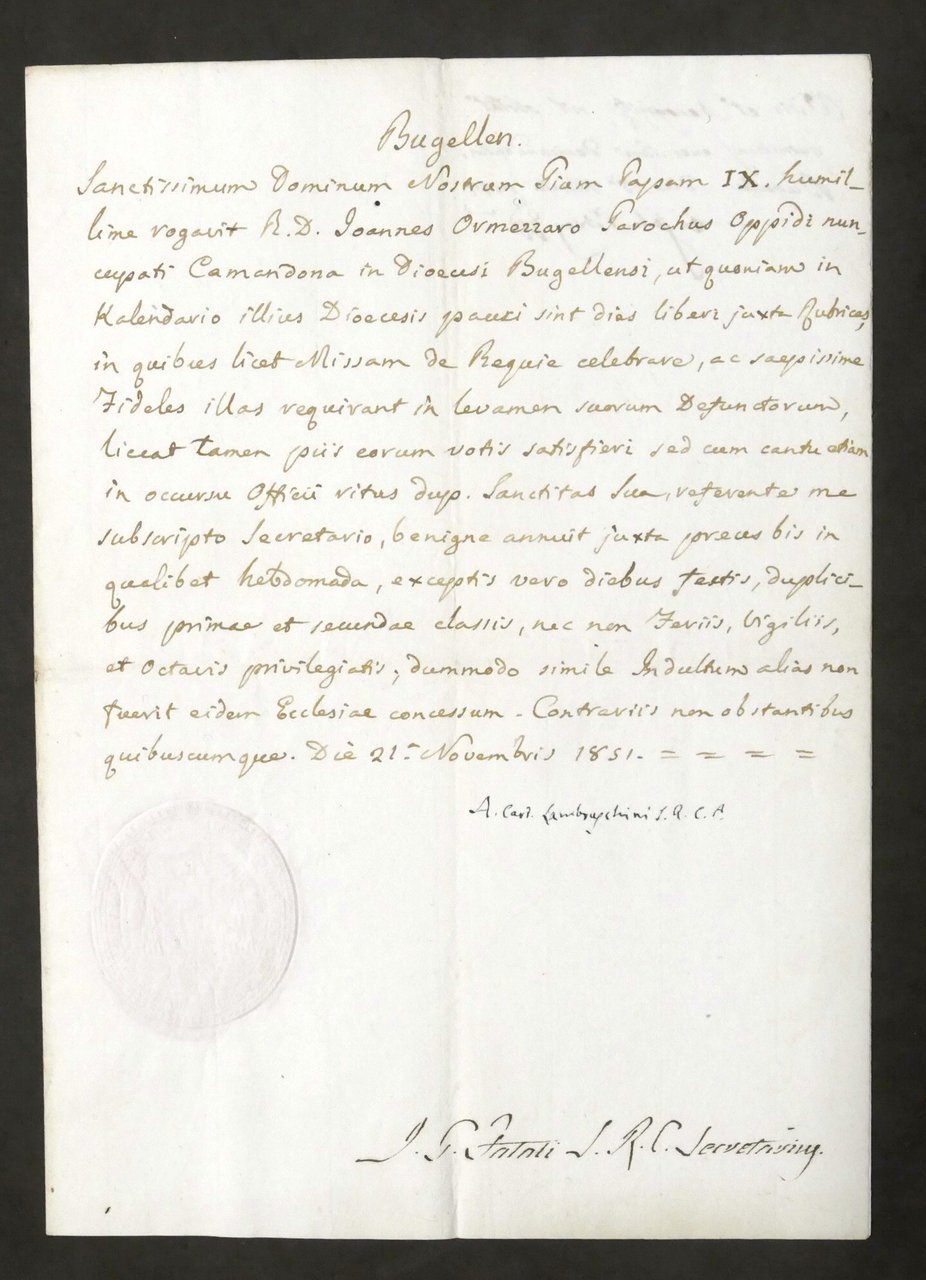 Bugellen.
Sanctissimum Dominum Nostrum Pium Papam IX. humil-
lime rogavit R. D. Joannes Ormezzaro Parochus Oppidi nun-
cupati Camandona in Dioecesi Bugellensi, ut quoniam in
Kalendario illius Dioecesis pauci sint dies liberi juxta Rubricas,
in quibus licet Missam de Requie celebrare, ac saepissime
Fideles illas requirant in levamen suorum Defunctorum,
liceat tamen piis eorum votis satisfieri sed cum cantu etiam
in occursu Officii ritus dup. Sanctitas Sua, referente me
subscripto Secretario, benigne annuit juxta preces bis in
qualibet hebdomada, exceptis vero diebus festis, duplici-
bus primae et secundae classis, nec non Feriis, Vigiliis,
et Octavis privilegiatis; dummodo simile Indultum alias non
fuerit eidem Ecclesiae concessum. Contrariis non obstantibus
quibuscumque. Die 21. Novembris 1851. = = = =
A. Card. Lambruschini S. R. C. P.
J. G. Fatati S. R. C. Secretarius.